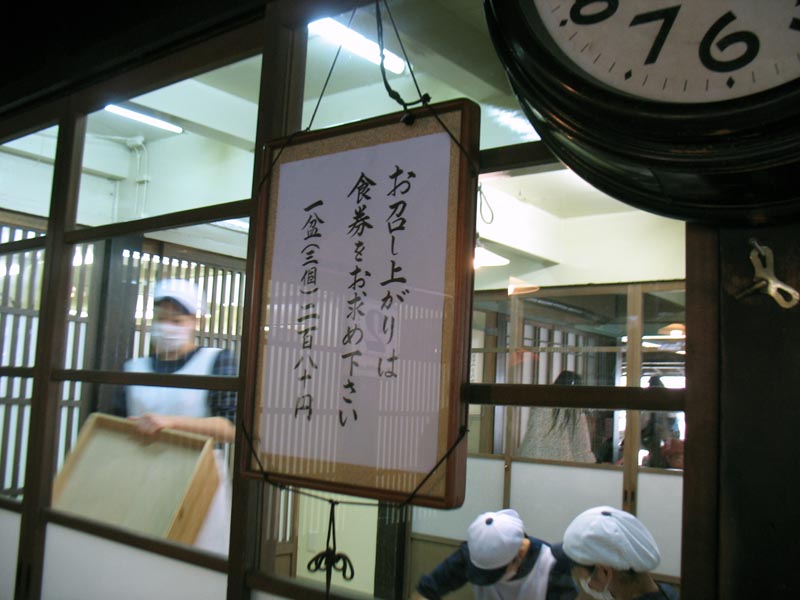 お召し上がりは
食券をお求め下さい
一盆(三個)二百八十円
8
7
6